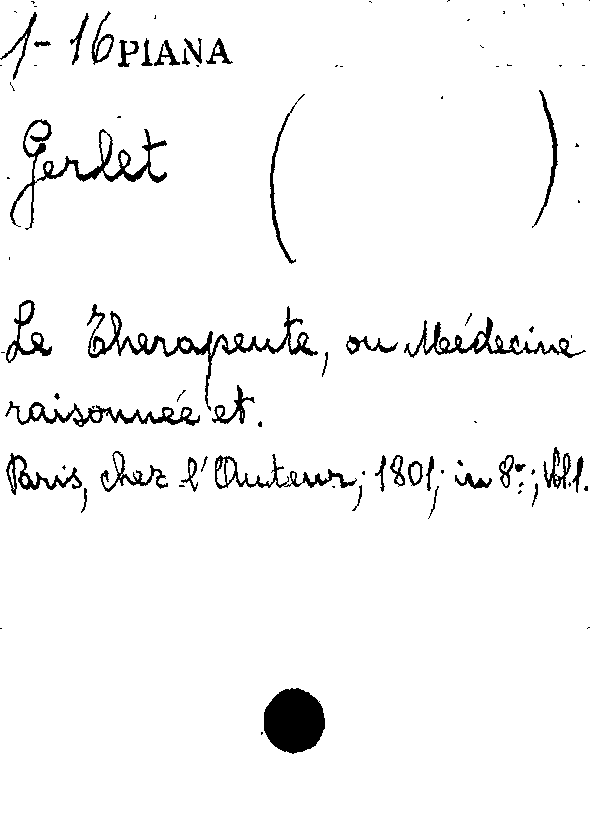 1-16 PIANA
Gerlet ( )
Le Therapeute, ou Médecine
raisonnée et.
Paris, chez l'Auteur; 1801; in 8º; Vol 1.